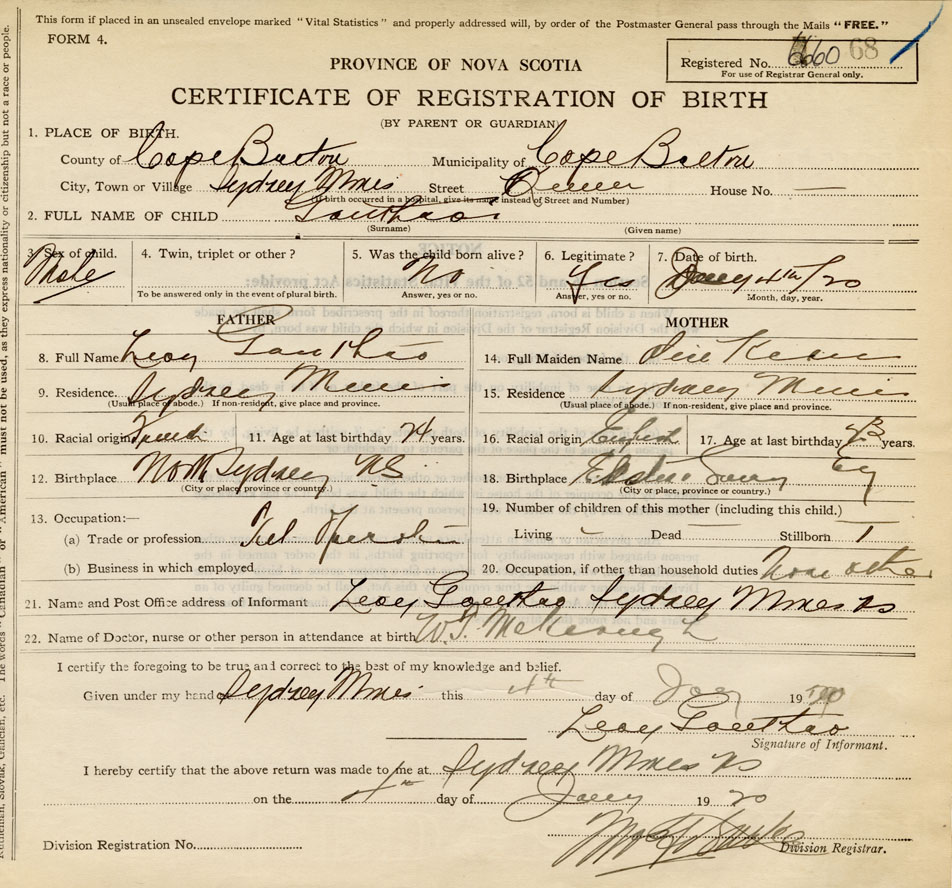 This form if placed in an unsealed envelope marked "Vital Statistics" and properly addressed will, by order of the Postmaster General pass through the Mails "FREE."
FORM 4.
Registered No. 68
For use of Registrar General only.
PROVINCE OF NOVA SCOTIA
CERTIFICATE OF REGISTRATION OF BIRTH
(BY PARENT OR GUARDIAN)
1. PLACE OF BIRTH.
County of Cape Breton Municipality of Cape Breton
City, Town or Village Sydney Mines Street House No. —
(If birth occurred in a hospital, give its name instead of Street and Number)
2. FULL NAME OF CHILD
(Surname) (Given name)
3. Sex of child. 4. Twin, triplet or other? 5. Was the child born alive? 6. Legitimate? 7. Date of birth.
Male No Yes Jany 4th/20
To be answered only in the event of plural birth. Answer, yes or no. Answer, yes or no. Month, day, year.
FATHER MOTHER
8. Full Name Leroy 14. Full Maiden Name
9. Residence. Sydney Mines 15. Residence Sydney Mines
(Usual place of abode.) If non-resident, give place and province. (Usual place of abode.) If non-resident, give place and province.
10. Racial origin French 11. Age at last birthday 24 years. 16. Racial origin English 17. Age at last birthday 23 years.
12. Birthplace North Sydney NS 18. Birthplace
(City or place, province or country.) (City or place, province or country.)
13. Occupation:— 19. Number of children of this mother (including this child.)
(a) Trade or profession Tel Operator Living — Dead — Stillborn 1
(b) Business in which employed 20. Occupation, if other than household duties None other
21. Name and Post Office address of Informant Leroy Sydney Mines NS
22. Name of Doctor, nurse or other person in attendance at birth
I certify the foregoing to be true and correct to the best of my knowledge and belief.
Given under my hand Sydney Mines this 4th day of Jany 1920
Leroy
Signature of Informant.
I hereby certify that the above return was made to me at Sydney Mines NS
on the 4th day of Jany 1920
Division Registration No. Division Registrar.